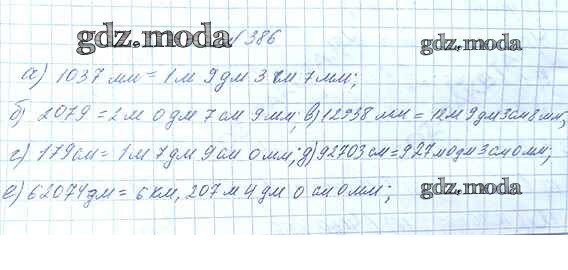 gdz.moda № 386 gdz.moda
а) 1037 мм = 1 м 9 дм 3 см 7 мм;
б) 2079 = 2 м 0 дм 7 см 9 мм; в) 12938 мм = 12 м 9 дм 3 см 8 мм;
г) 179 см = 1 м 7 дм 9 см 0 мм; д) 92703 см = 927 м 0 дм 3 см 0 мм;
е) 62074 дм = 6 км, 207 м 4 дм 0 см 0 мм; gdz.moda